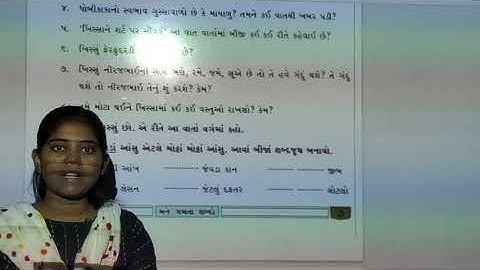 ૪. પોથીકાકાનો સ્વભાવ ગુસ્સાવાળો છે કે માયાળુ? તમને કઈ વાતથી ખબર પડી?
૫. 'ખિસ્સાને શર્ટ પર આ વાત વાર્તામાં બીજી કઈ કઈ રીતે કહેવાઈ છે?
૬. ખિસ્સુ ફેરફુદરડી છે?
૭. ખિસ્સુ નીરજભાઈની સાથે જમે, રમે, સૂએ છે તો તે હવે ગંદુ થશે? તે ગંદુ
થશે તો નીરજભાઈ તેનું શું કરશે? કેમ?
મે મોટા થઈને ખિસ્સામાં કઈ કઈ વસ્તુઓ રાખશો? કેમ?
સ્સું છો. એ રીતે આ વાર્તા વર્ગમાં કહો.
આંસુ એટલે મોટાં મોટાં આંસુ. આવાં બીજાં શબ્દજૂથ બનાવો.
આંખ જેવડા કાન જીભ
લેસન જેટલું દફતર ચોટલો